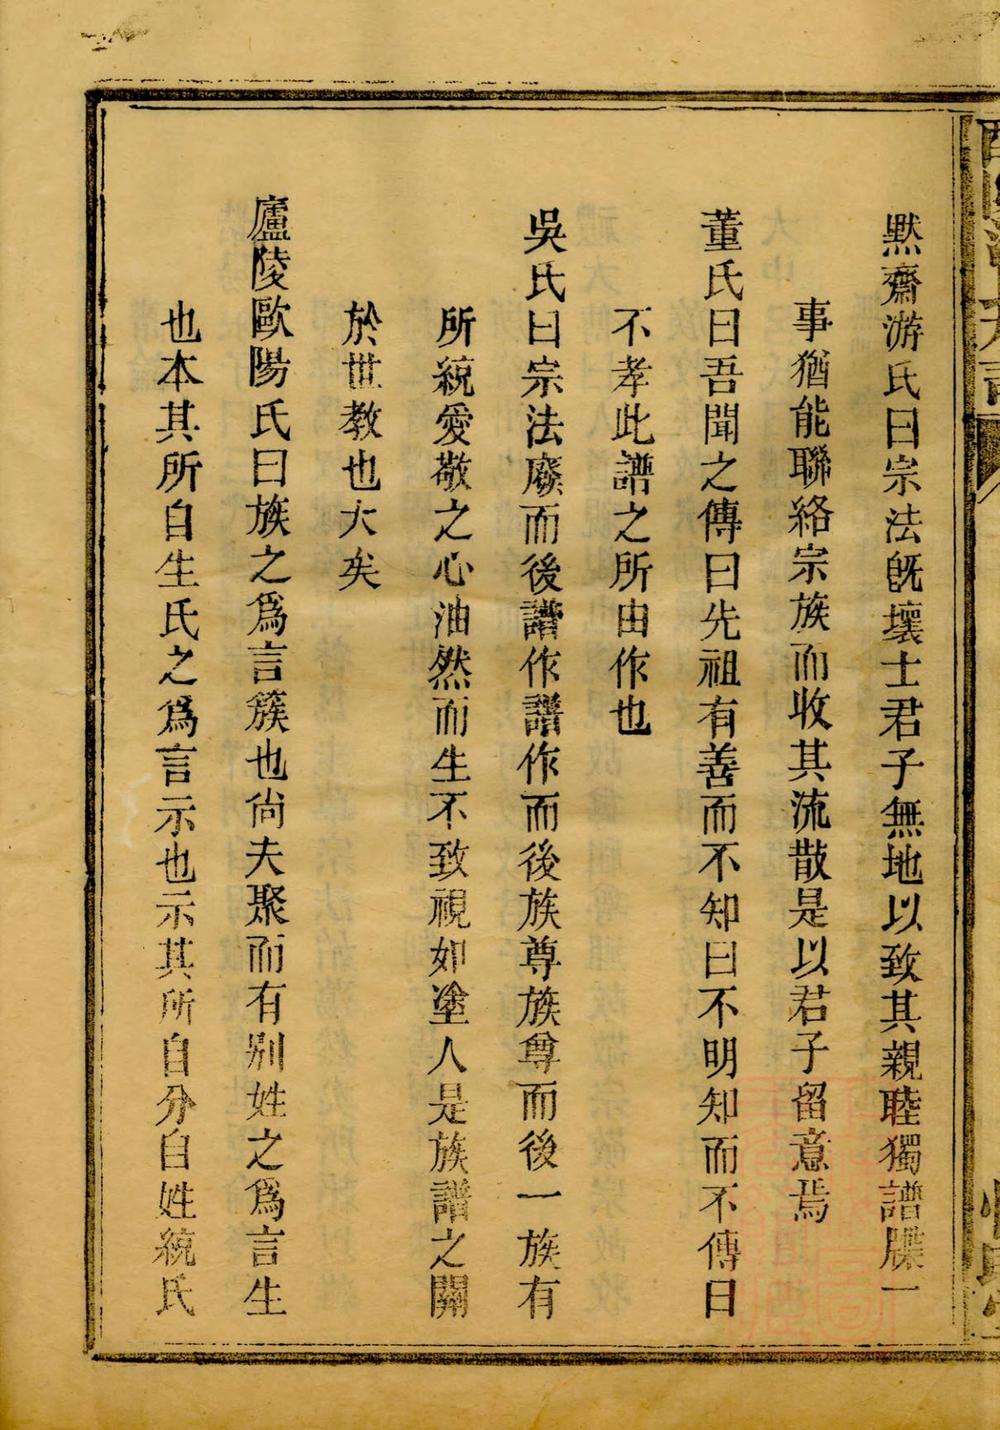 默齋游氏曰宗法旣壞士君子無地以致其親睦獨譜牒一
事猶能聯絡宗族而收其流散是以君子留意焉
董氏曰吾聞之傳曰先祖有善而不知曰不明知而不傳曰
不孝此譜之所由作也
吳氏曰宗法廢而後譜作譜作而後族尊族尊而後一族有
所統愛敬之心油然而生不致視如塗人是族譜之關
於世教也大矣
廬陵歐陽氏曰族之爲言簇也尙夫聚而有别姓之爲言生
也本其所自生氏之爲言示也示其所自分自姓統氏